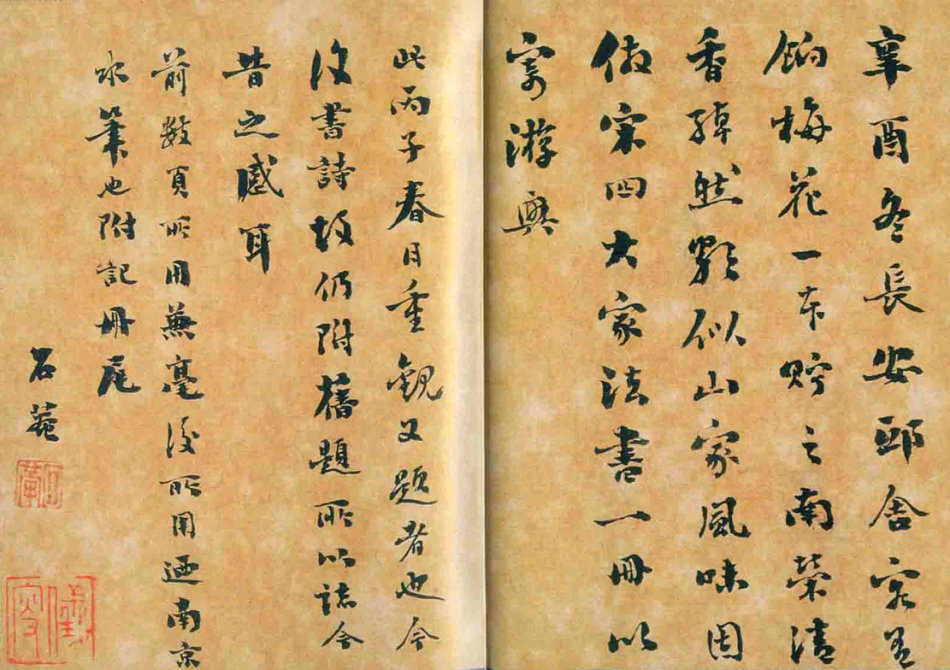 辛酉冬長安邸舍客有
餉梅花一本貯之南榮清
香綽然頗似山家風味因
倣宋四大家法書一冊以
寄游興
此丙子春日重觀又題者也今
復書詩故仍附舊題所以誌今
昔之感耳
前數頁所用兼毫後所用廼南京
水筆也附記冊尾
石菴
石菴